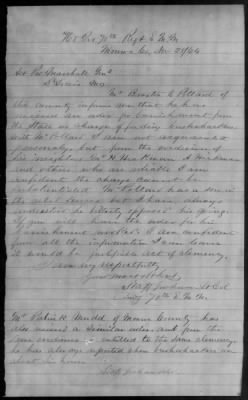 Hd Qrs 70th Regt E M M
Monroe Co. Nov 28/64
Pro Marshall Genl
St Louis Mo
Mr Braxton Pollard of
this county informs me that he has
received an order for banishment from
the State on charge of feeding bushwhackers
with Mr Pollard I am not acquainted
personally but from the evidence of
his neighbors
and others who are reliable I am
confident the charge cannot be
substantiated Mr Pollard has a son in
the rebel but I have always
understood he bitterly opposed his going.
If you will have the order for his
banishment revoked I am confident
from all the information I can learn
it would be justifiable act of clemency.
I am very respectfully
Your most obdt
Lt Col
70th E M M
Mr Patrick Mudd of Monroe County has
also received a similar order and from the
same evidence is entitled to the same clemency
he has always reported when bushwhackers were
about his house